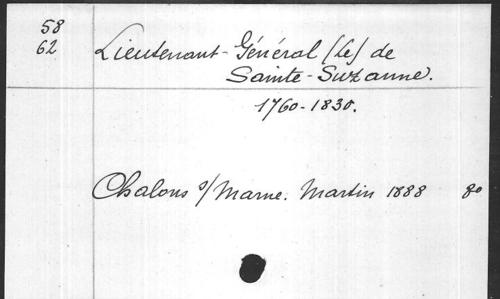 58
62
Lieutenant-Général (le) de
Sainte-Suzanne.
1760-1830.
Chalons s/Marne. Martin 1888 8o